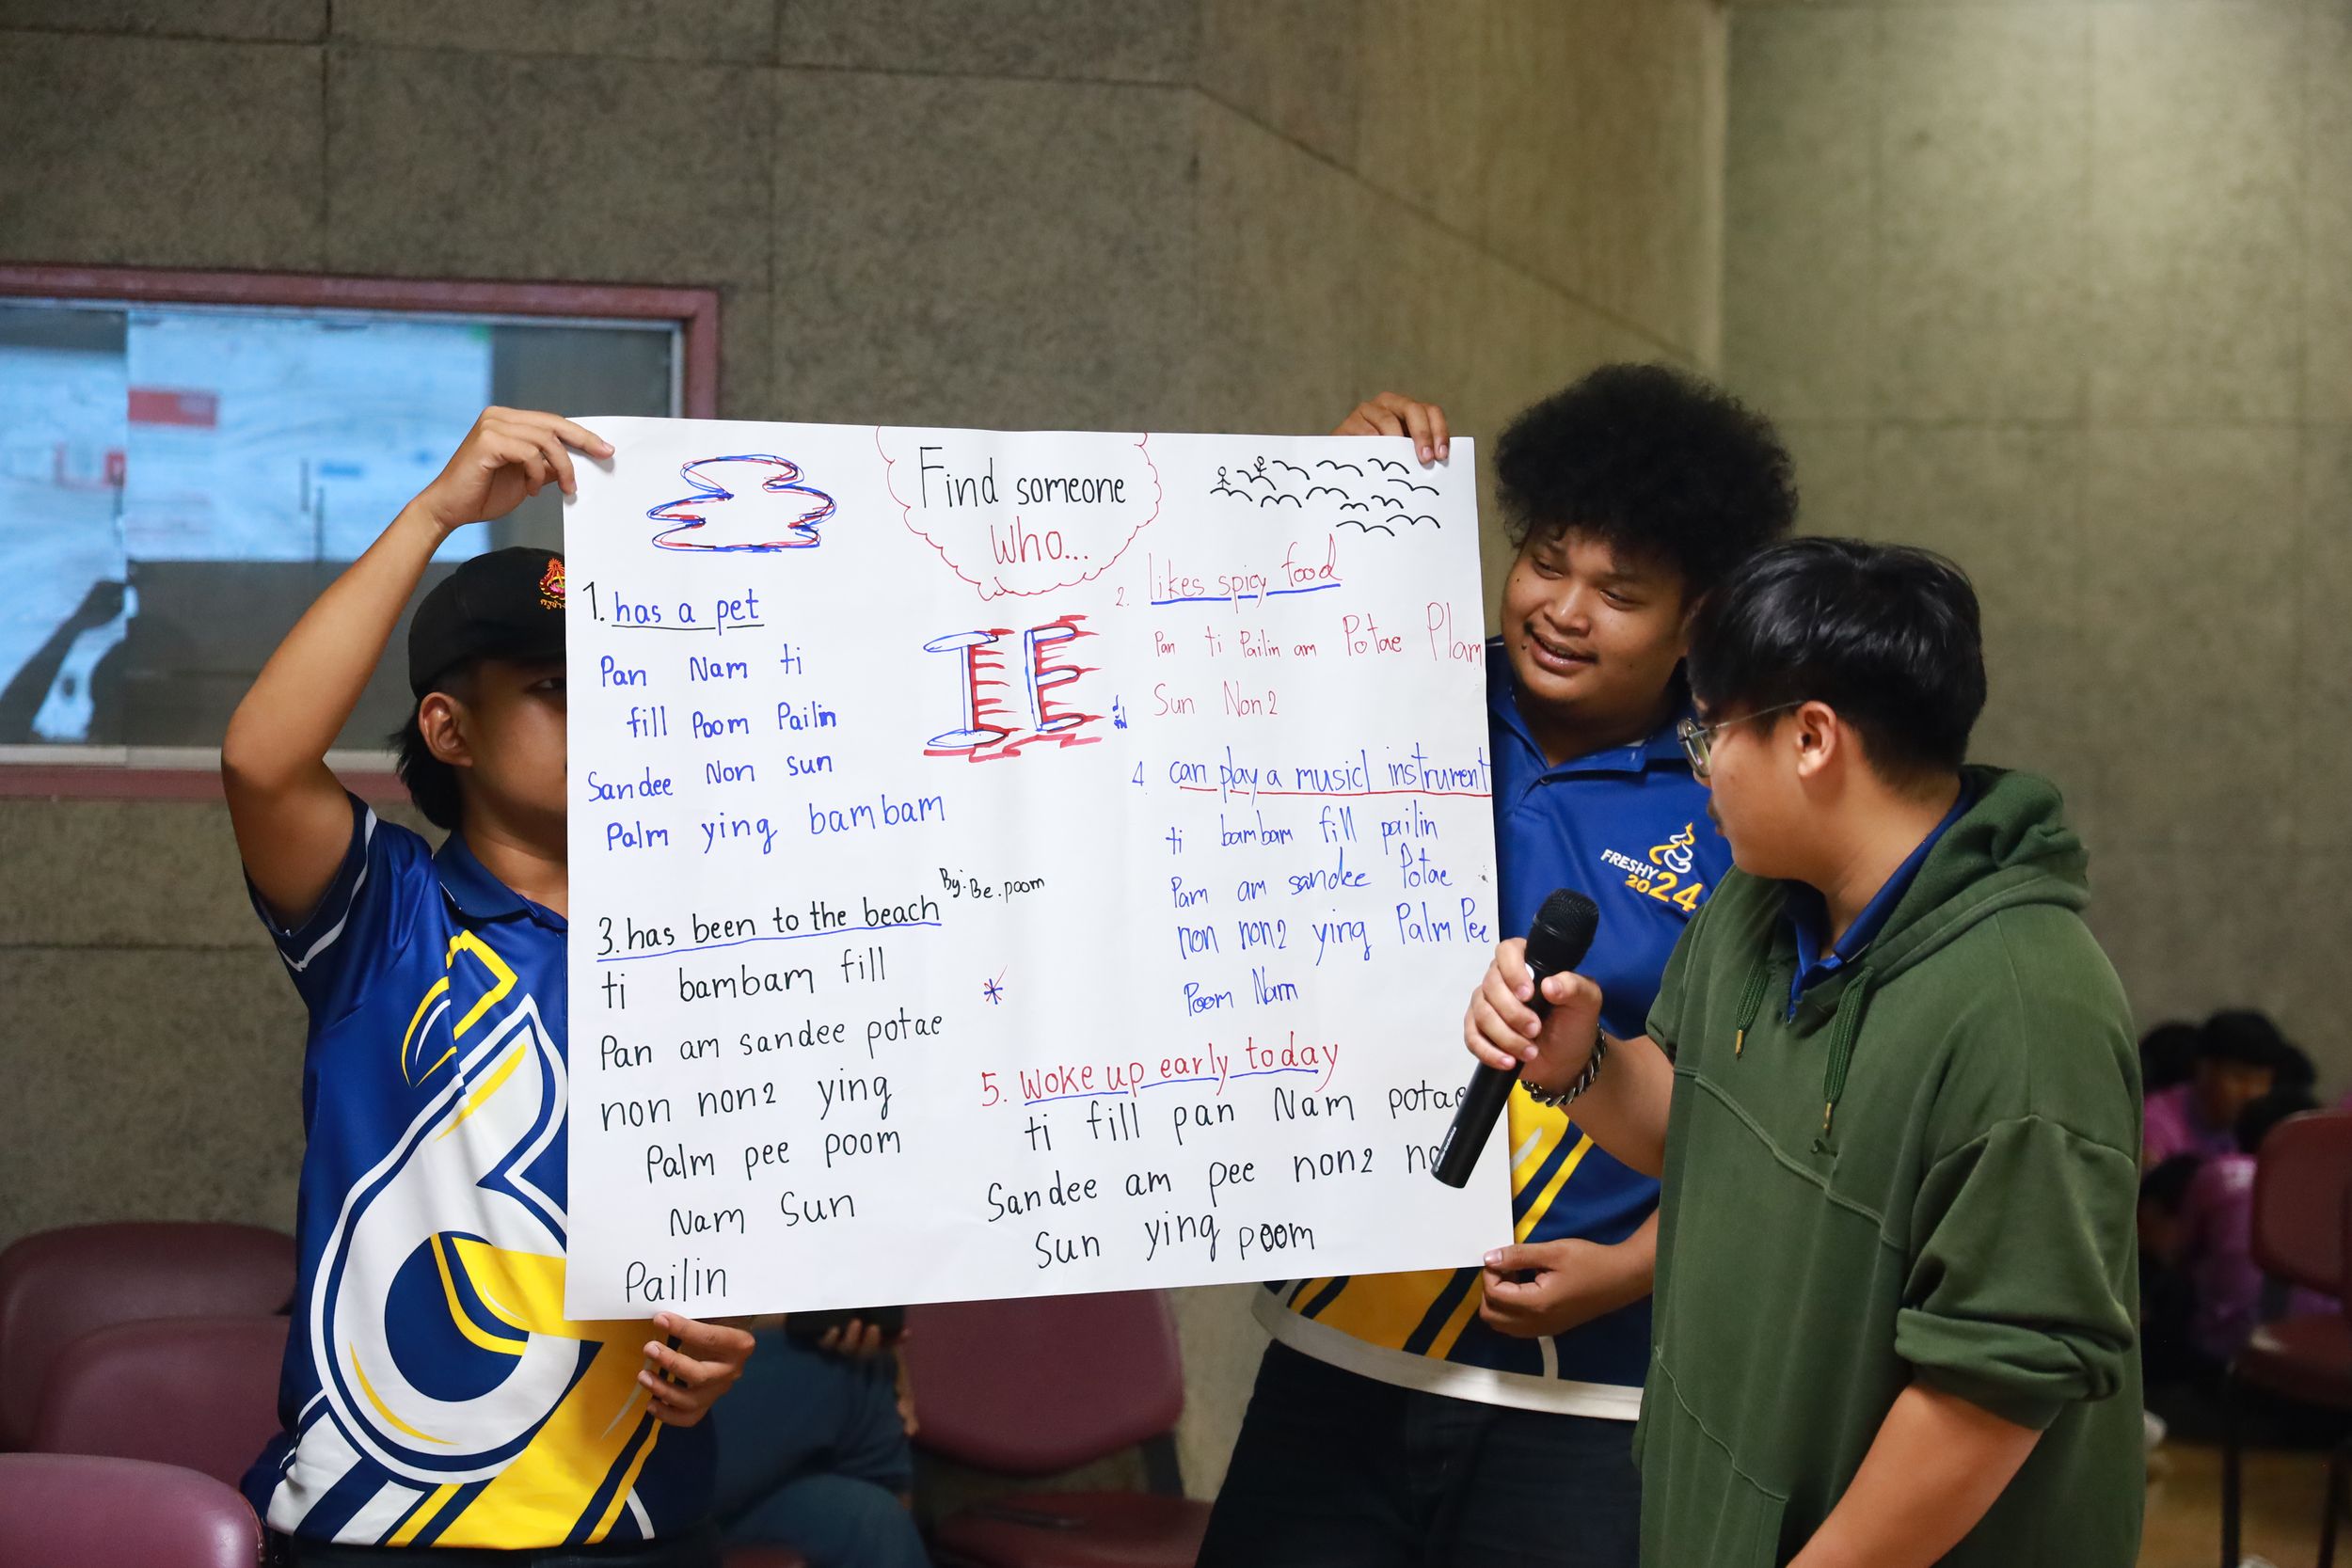 Find someone
Who...
1. has a pet
Pan Nam ti
fill Poom Pailin
Sandee Non sun
Palm ying bambam
2. likes spicy food
Pan ti Pailin am Potae Plam
Sun Non2
IE
3. has been to the beach
By: Be.poom
ti bambam fill
Pan am sandee potae
non non2 ying
Palm pee poom
Nam Sun
Pailin
4 can play a musicl instrument
ti bambam fill pailin
Pam am sandee Potae
non non2 ying Palm Pee
Poom Nam
5. woke up early today
ti fill pan Nam potae
Sandee am pee non2
Sun ying poom
FRESHY
2024